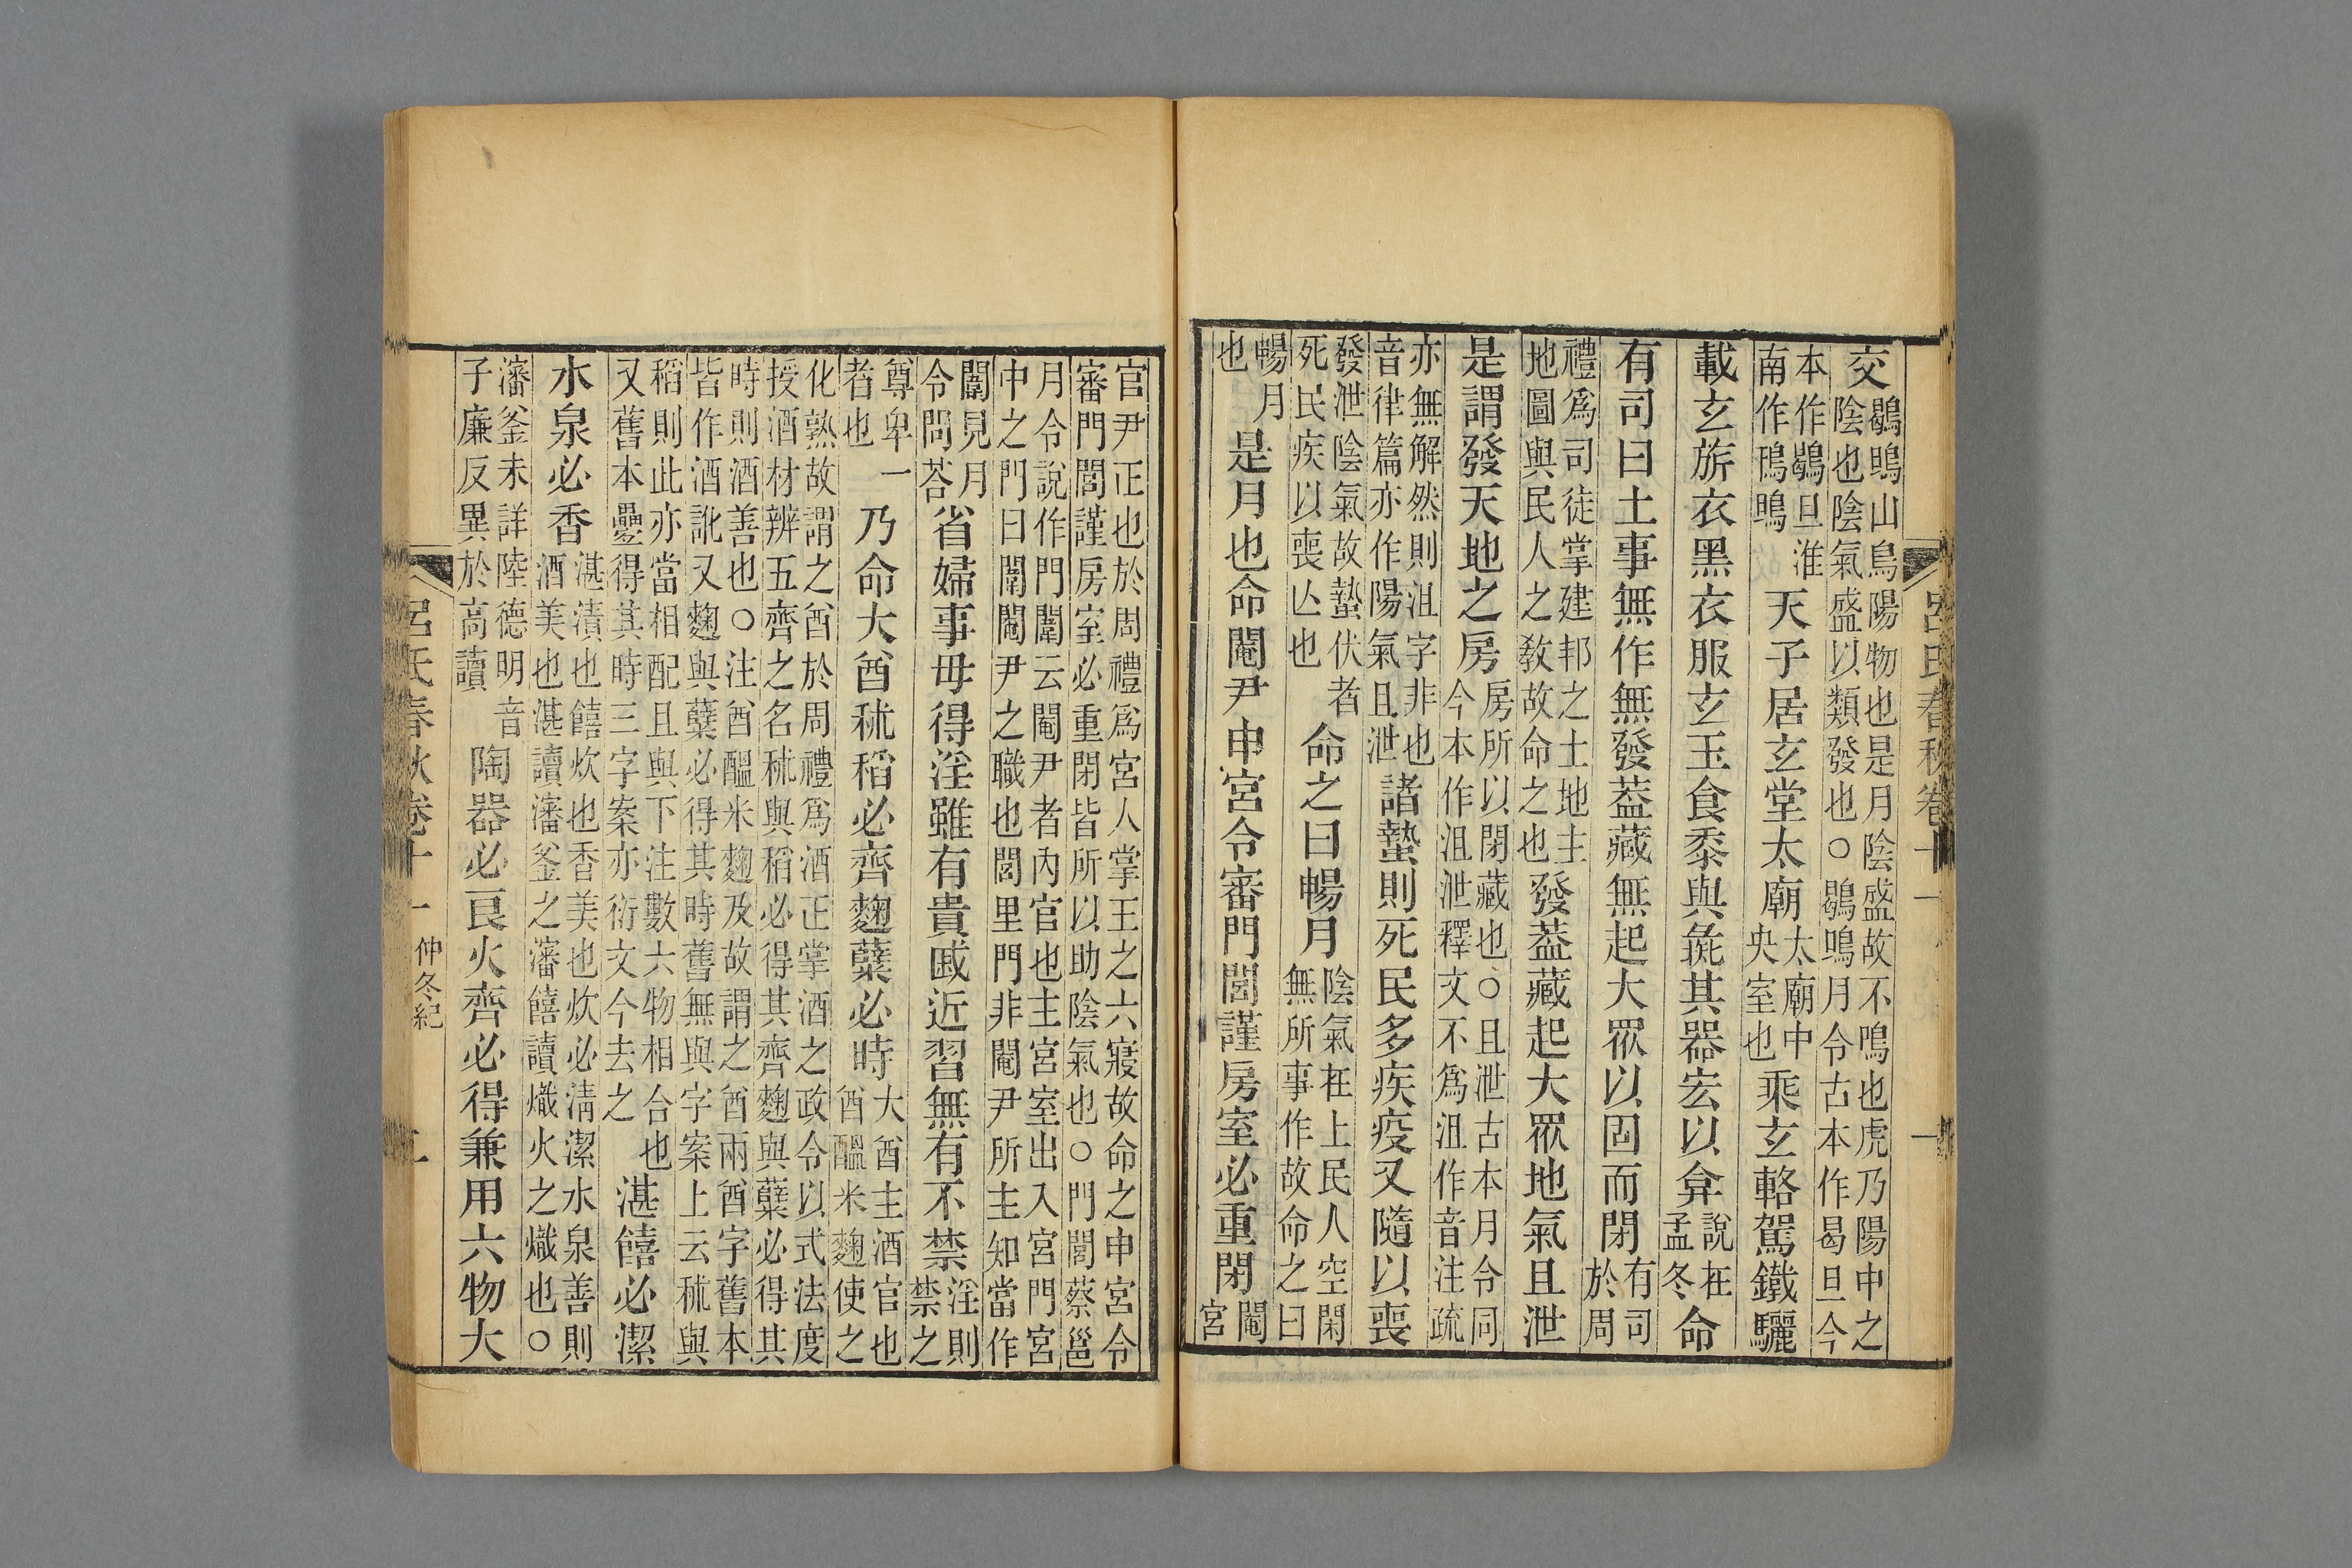 呂氏春秋卷十一
交鶡鴠山鳥陽物也是月陰盛故不鳴也虎乃陽中之
陰也陰氣盛以類發也○鶡鳴月令古本作曷旦今
本作鶡旦淮
南作鳱鴠天子居玄堂太廟太廟中
央室也乘玄輅駕鐵驪
載玄旂衣黑衣服玄玉食黍與彘其器宏以弇說在
孟冬命
有司曰土事無作無發葢藏無起大眾以固而閉有司
於周
禮爲司徒掌建邦之土地主
地圖與民人之敎故命之也發葢藏起大眾地氣且泄
是謂發天地之房房所以閉藏也○且泄古本月令同
今本作沮泄釋文不爲沮作音注疏
亦無解然則沮字非也
音律篇亦作陽氣且泄諸蟄則死民多疾疫又隨以喪
發泄陰氣故蟄伏者
死民疾以喪亾也命之曰暢月陰氣在上民人空閑
無所事作故命之曰
暢月
也是月也命閹尹申宮令審門閭謹房室必重閉閹
宮
官尹正也於周禮爲宮人掌王之六寢故命之申宮令
審門閭謹房室必重閉皆所以助陰氣也○門閭蔡邕
月令說作門闈云閹尹者內官也主宮室出入宮門宮
中之門曰闈閹尹之職也閭里門非閹尹所主知當作
闈見月
令問荅省婦事毋得淫雖有貴戚近習無有不禁淫則
禁之
尊卑一
者也乃命大酋秫稻必齊麴糵必時大酋主酒官也
酋醞米麴使之
化熟故謂之酋於周禮爲酒正掌酒之政令以式法度
授酒材辨五齊之名秫與稻必得其齊麴與糵必得其
時則酒善也○注酋醞米麴及故謂之酋兩酋字舊本
皆作酒訛又麴與糵必得其時舊無與字案上云秫與
稻則此亦當相配且與下注數六物相合也
又舊本疊得其時三字案亦衍文今去之湛饎必潔
水泉必香湛漬也饎炊也香美也炊必淸潔水泉善則
酒美也湛讀瀋釜之瀋饎讀熾火之熾也○
瀋釜未詳陸德明音
子廉反異於高讀陶器必良火齊必得兼用六物大
呂氏春秋卷十一 仲冬紀